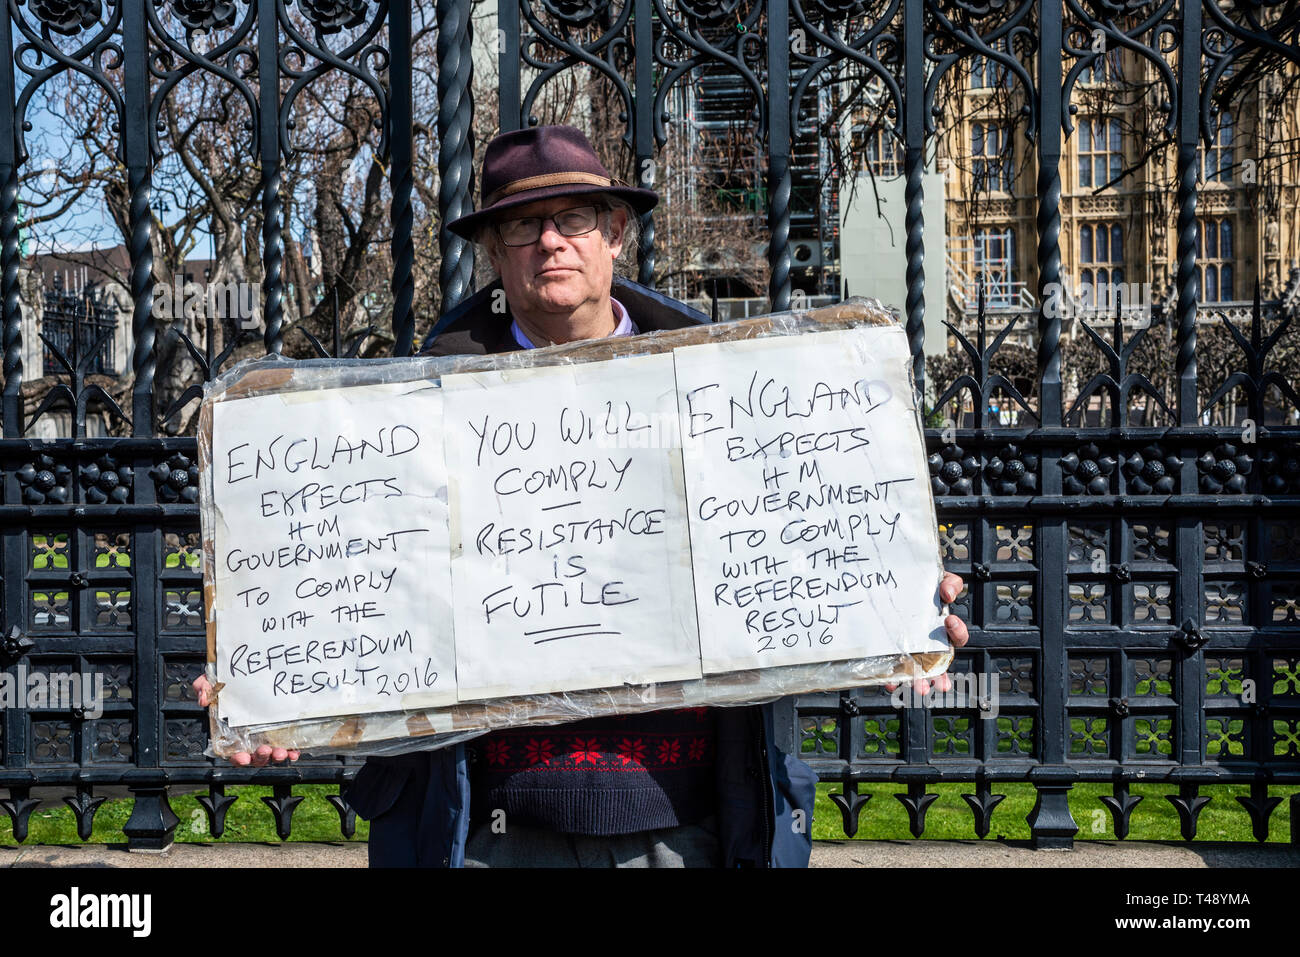 ENGLAND
EXPECTS
HM
GOVERNMENT
TO COMPLY
WITH THE
REFERENDUM
RESULT 2016
YOU WILL
COMPLY
RESISTANCE
IS
FUTILE
ENGLAND
EXPECTS
HM
GOVERNMENT
TO COMPLY
WITH THE
REFERENDUM
RESULT
2016
alamy
Image ID: T48YMA
www.alamy.com